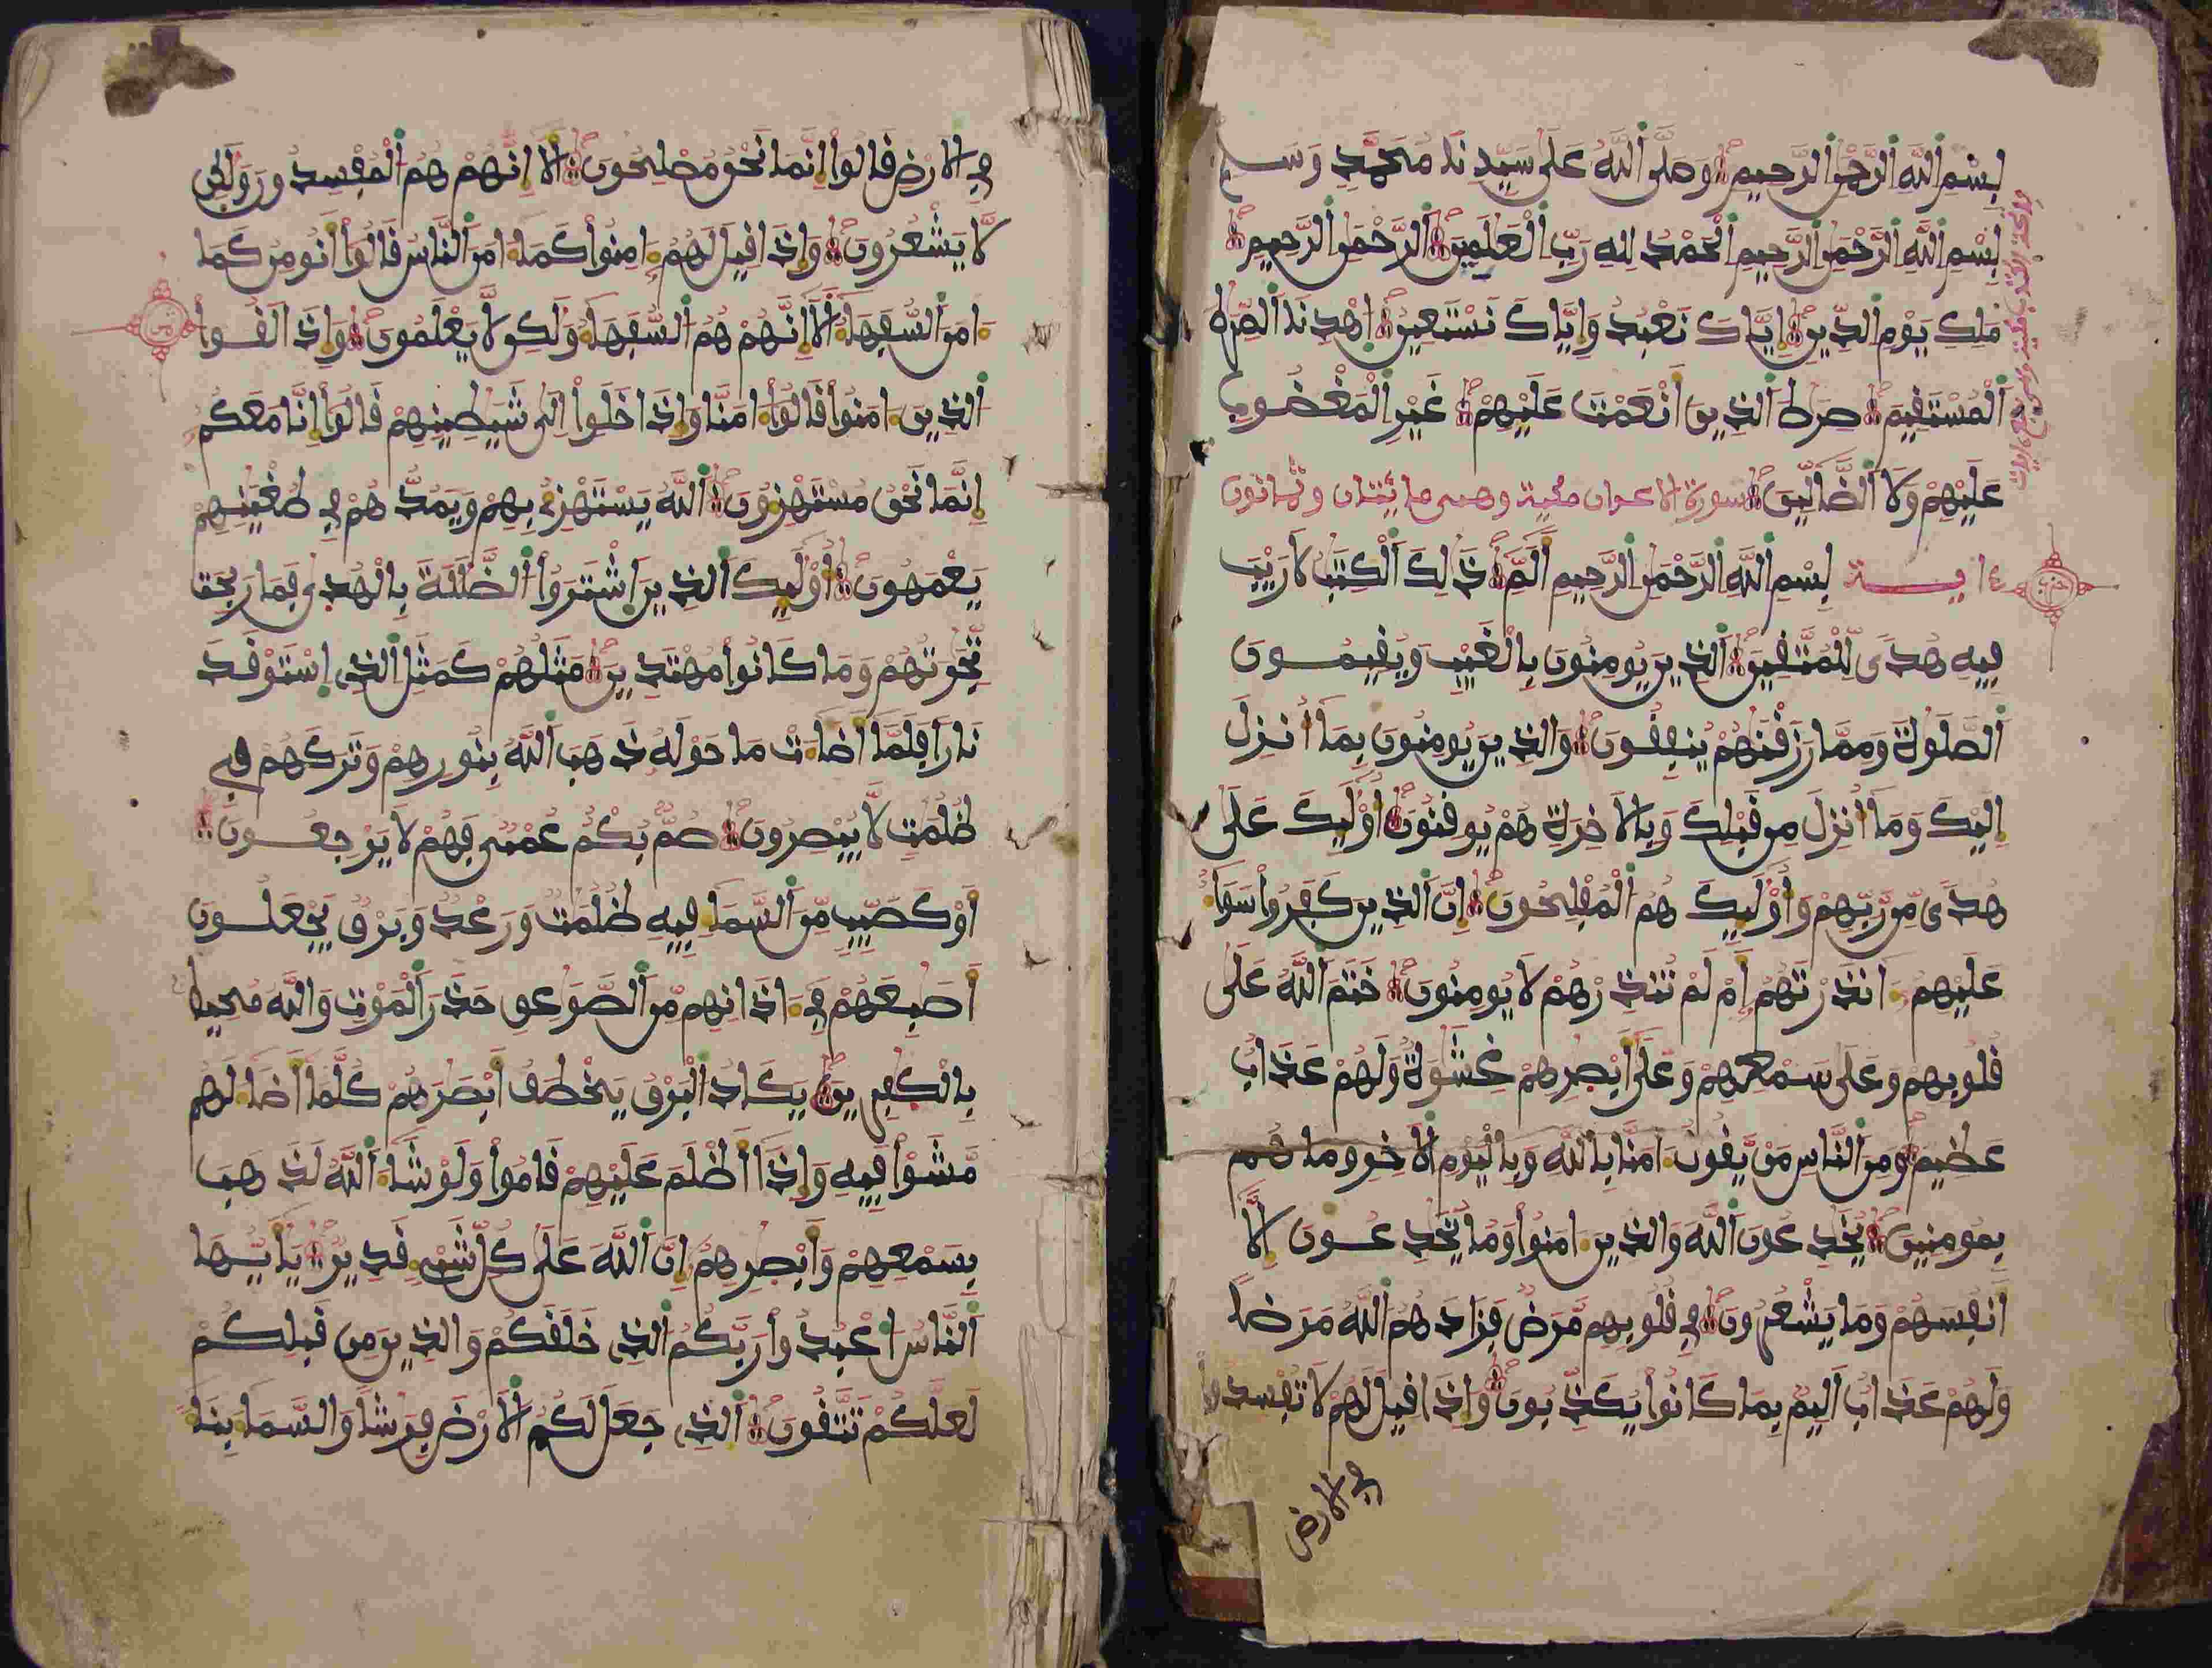 بِسْمِ اِ۬للَّهِ اِ۬لرَّحْمَٰنِ اِ۬لرَّحِيمِ وَصَلَّى اَ۬للَّهُ عَلَىٰ سَيِّدِنَا مُحَمَّدٍ وَسَلم
بِسْمِ اِ۬للَّهِ اِ۬لرَّحْمَٰنِ اِ۬لرَّحِيمِ اِ۬لْحَمْدُ لِلهِ رَبِّ اِ۬لْعَٰلَمِينَ اَ۬لرَّحْمَٰنِ اِ۬لرَّحِيمِ
مَلِكِ يَوْمِ اِ۬لدِّينِ إِيَّاكَ نَعْبُدُ وَإِيَّاكَ نَسْتَعِينُ اُ۪هْدِنَا اَ۬لصِّرَٰطَ
اَ۬لْمُسْتَقِيمَ صِرَٰطَ اَ۬لذِينَ أَنْعَمْتَ عَلَيْهِمْ غَيْرِ اِ۬لْمَغْضُوبِ
عَلَيْهِمْ وَلَا اَ۬لضَّآلِّينَ سورة وهى مائتان وثمانون
اية بِسْمِ اِ۬للَّهِ اِ۬لرَّحْمَٰنِ اِ۬لرَّحِيمِ أَلَٓمِّٓ ذَٰلِكَ اَ۬لْكِتَٰبُ لَا رَيْبَ
فِيهِ هُدًى لِّلْمُتَّقِينَ اَ۬لذِينَ يُومِنُونَ بِالْغَيْبِ وَيُقِيمُونَ
اَ۬لصَّلَوٰةَ وَمِمَّا رَزَقْنَٰهُمْ يُنفِقُونَ وَالذِينَ يُومِنُونَ بِمَآ أُنزِلَ
إِلَيْكَ وَمَآ أُنزِلَ مِن قَبْلِكَ وَبِالَاخِرَةِ هُمْ يُوقِنُونَ أُوْلَٰٓئِكَ عَلَىٰ
هُدًى مِّن رَّبِّهِمْ وَأُوْلَٰٓئِكَ هُمُ اُ۬لْمُفْلِحُونَ إِنَّ اَ۬لذِينَ كَفَرُواْ سَوَآءٌ
عَلَيْهِمُۥٓ ءَآنذَرْتَهُمُۥٓ أَمْ لَمْ تُنذِرْهُمْ لَا يُومِنُونَ خَتَمَ اَ۬للَّهُ عَلَىٰ
قُلُوبِهِمْ وَعَلَىٰ سَمْعِهِمْ وَعَلَىٰٓ أَبْصَٰرِهِمْ غِشَٰوَةٌ وَلَهُمْ عَذَابٌ
عَظِيمٌ وَمِنَ اَ۬لنَّاسِ مَنْ يَّقُولُ ءَامَنَّا بِاللَّهِ وَبِالْيَوْمِ اِ۬لَاخِرِ وَمَا هُم
بِمُومِنِينَ يُخَٰدِعُونَ اَ۬للَّهَ وَالذِينَ ءَامَنُواْ وَمَا يُخَٰدِعُونَ إِلَّآ
أَنفُسَهُمْ وَمَا يَشْعُرُونَ فِے قُلُوبِهِم مَّرَضٌ فَزَادَهُمُ اُ۬للَّهُ مَرَضًا
وَلَهُمْ عَذَابٌ أَلِيمٌ بِمَا كَانُواْ يُكَذِّبُونَ وَإِذَا قِيلَ لَهُمْ لَا تُفْسِدُواْ
في الارض
فِے اِ۬لَارْضِ قَالُوٓاْ إِنَّمَا نَحْنُ مُصْلِحُونَ أَلَآ إِنَّهُمْ هُمُ اُ۬لْمُفْسِدُونَ وَلَٰكِن
لَّا يَشْعُرُونَ وَإِذَا قِيلَ لَهُمُۥٓ ءَامِنُواْ كَمَآ ءَامَنَ اَ۬لنَّاسُ قَالُوٓاْ أَنُومِنُ كَمَآ
ءَامَنَ اَ۬لسُّفَهَآءُ أَلَآ إِنَّهُمْ هُمُ اُ۬لسُّفَهَآءُ وَلَٰكِن لَّا يَعْلَمُونَ وَإِذَا لَقُواْ
اُ۬لذِينَ ءَامَنُواْ قَالُوٓاْ ءَامَنَّا وَإِذَا خَلَوِاْ اِلَىٰ شَيَٰطِينِهِمْ قَالُوٓاْ إِنَّا مَعَكُمُۥٓ
إِنَّمَا نَحْنُ مُسْتَهْزِءُونَ اَ۬للَّهُ يَسْتَهْزِئُ بِهِمْ وَيَمُدُّهُمْ فِے طُغْيَٰنِهِمْ
يَعْمَهُونَ أُوْلَٰٓئِكَ اَ۬لذِينَ اَ۪شْتَرَوُاْ اُ۬لضَّلَٰلَةَ بِالْهُدَىٰ فَمَا رَبِحَت
تِّجَٰرَتُهُمْ وَمَا كَانُواْ مُهْتَدِينَ مَثَلُهُمْ كَمَثَلِ اِ۬لذِے اِ۪سْتَوْقَدَ
نَارًا فَلَمَّآ أَضَآءَتْ مَا حَوْلَهُۥ ذَهَبَ اَ۬للَّهُ بِنُورِهِمْ وَتَرَكَهُمْ فِے
ظُلُمَٰتٍ لَّا يُبْصِرُونَ صُمُّۢ بُكْمٌ عُمْيٌ فَهُمْ لَا يَرْجِعُونَ
أَوْ كَصَيِّبٍ مِّنَ اَ۬لسَّمَآءِ فِيهِ ظُلُمَٰتٌ وَرَعْدٌ وَبَرْقٌ يَجْعَلُونَ
أَصَٰبِعَهُمْ فِےٓ ءَاذَانِهِم مِّنَ اَ۬لصَّوَٰعِقِ حَذَرَ اَ۬لْمَوْتِ وَاللَّهُ مُحِيطٌۢ
بِالْكٰفِرِينَ يَكَادُ اُ۬لْبَرْقُ يَخْطَفُ أَبْصَٰرَهُمْ كُلَّمَآ أَضَآءَ لَهُم
مَّشَوْاْ فِيهِ وَإِذَآ أَظْلَمَ عَلَيْهِمْ قَامُواْ وَلَوْ شَآءَ اَ۬للَّهُ لَذَهَبَ
بِسَمْعِهِمْ وَأَبْصَٰرِهِمُۥٓ إِنَّ اَ۬للَّهَ عَلَىٰ كُلِّ شَےْءٍ قَدِيرٌ يَٰٓأَيُّهَا
اَ۬لنَّاسُ اُ۟عْبُدُواْ رَبَّكُمُ اُ۬لذِے خَلَقَكُمْ وَالذِينَ مِن قَبْلِكُمْ
لَعَلَّكُمْ تَتَّقُونَ اَ۬لذِے جَعَلَ لَكُمُ اُ۬لَارْضَ فِرَٰشًا وَالسَّمَآءَ بِنَآءً